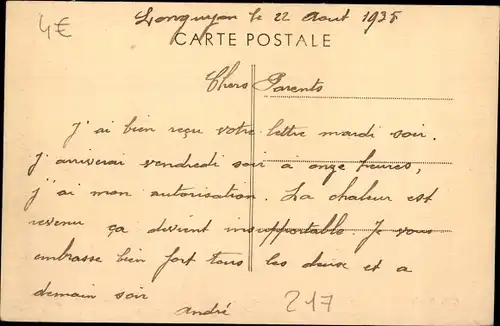 4€
Longuyon le 22 Août 1935
CARTE POSTALE
Chers Parents
J'ai bien reçu votre lettre mardi soir.
J'arriverai vendredi soir à onze heures,
j'ai mon autorisation. La chaleur est
revenu ça devient insupportable. Je vous
embrasse bien fort tous les deux et a
demain soir
andré
217